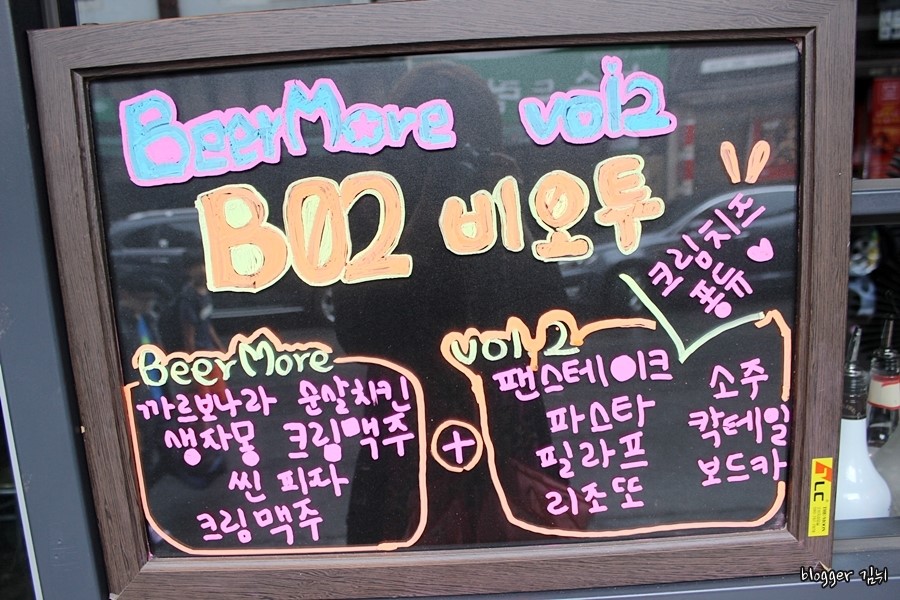 BeerMore vol2
B02 비오투
크림치즈
퐁듀
BeerMore
까르보나라 순살치킨
생자몽 크림맥주
씬 피자
크림맥주
+
vol 2
팬스테이크
파스타
필라프
리조또
소주
칵테일
보드카
LC
blogger 김뉘